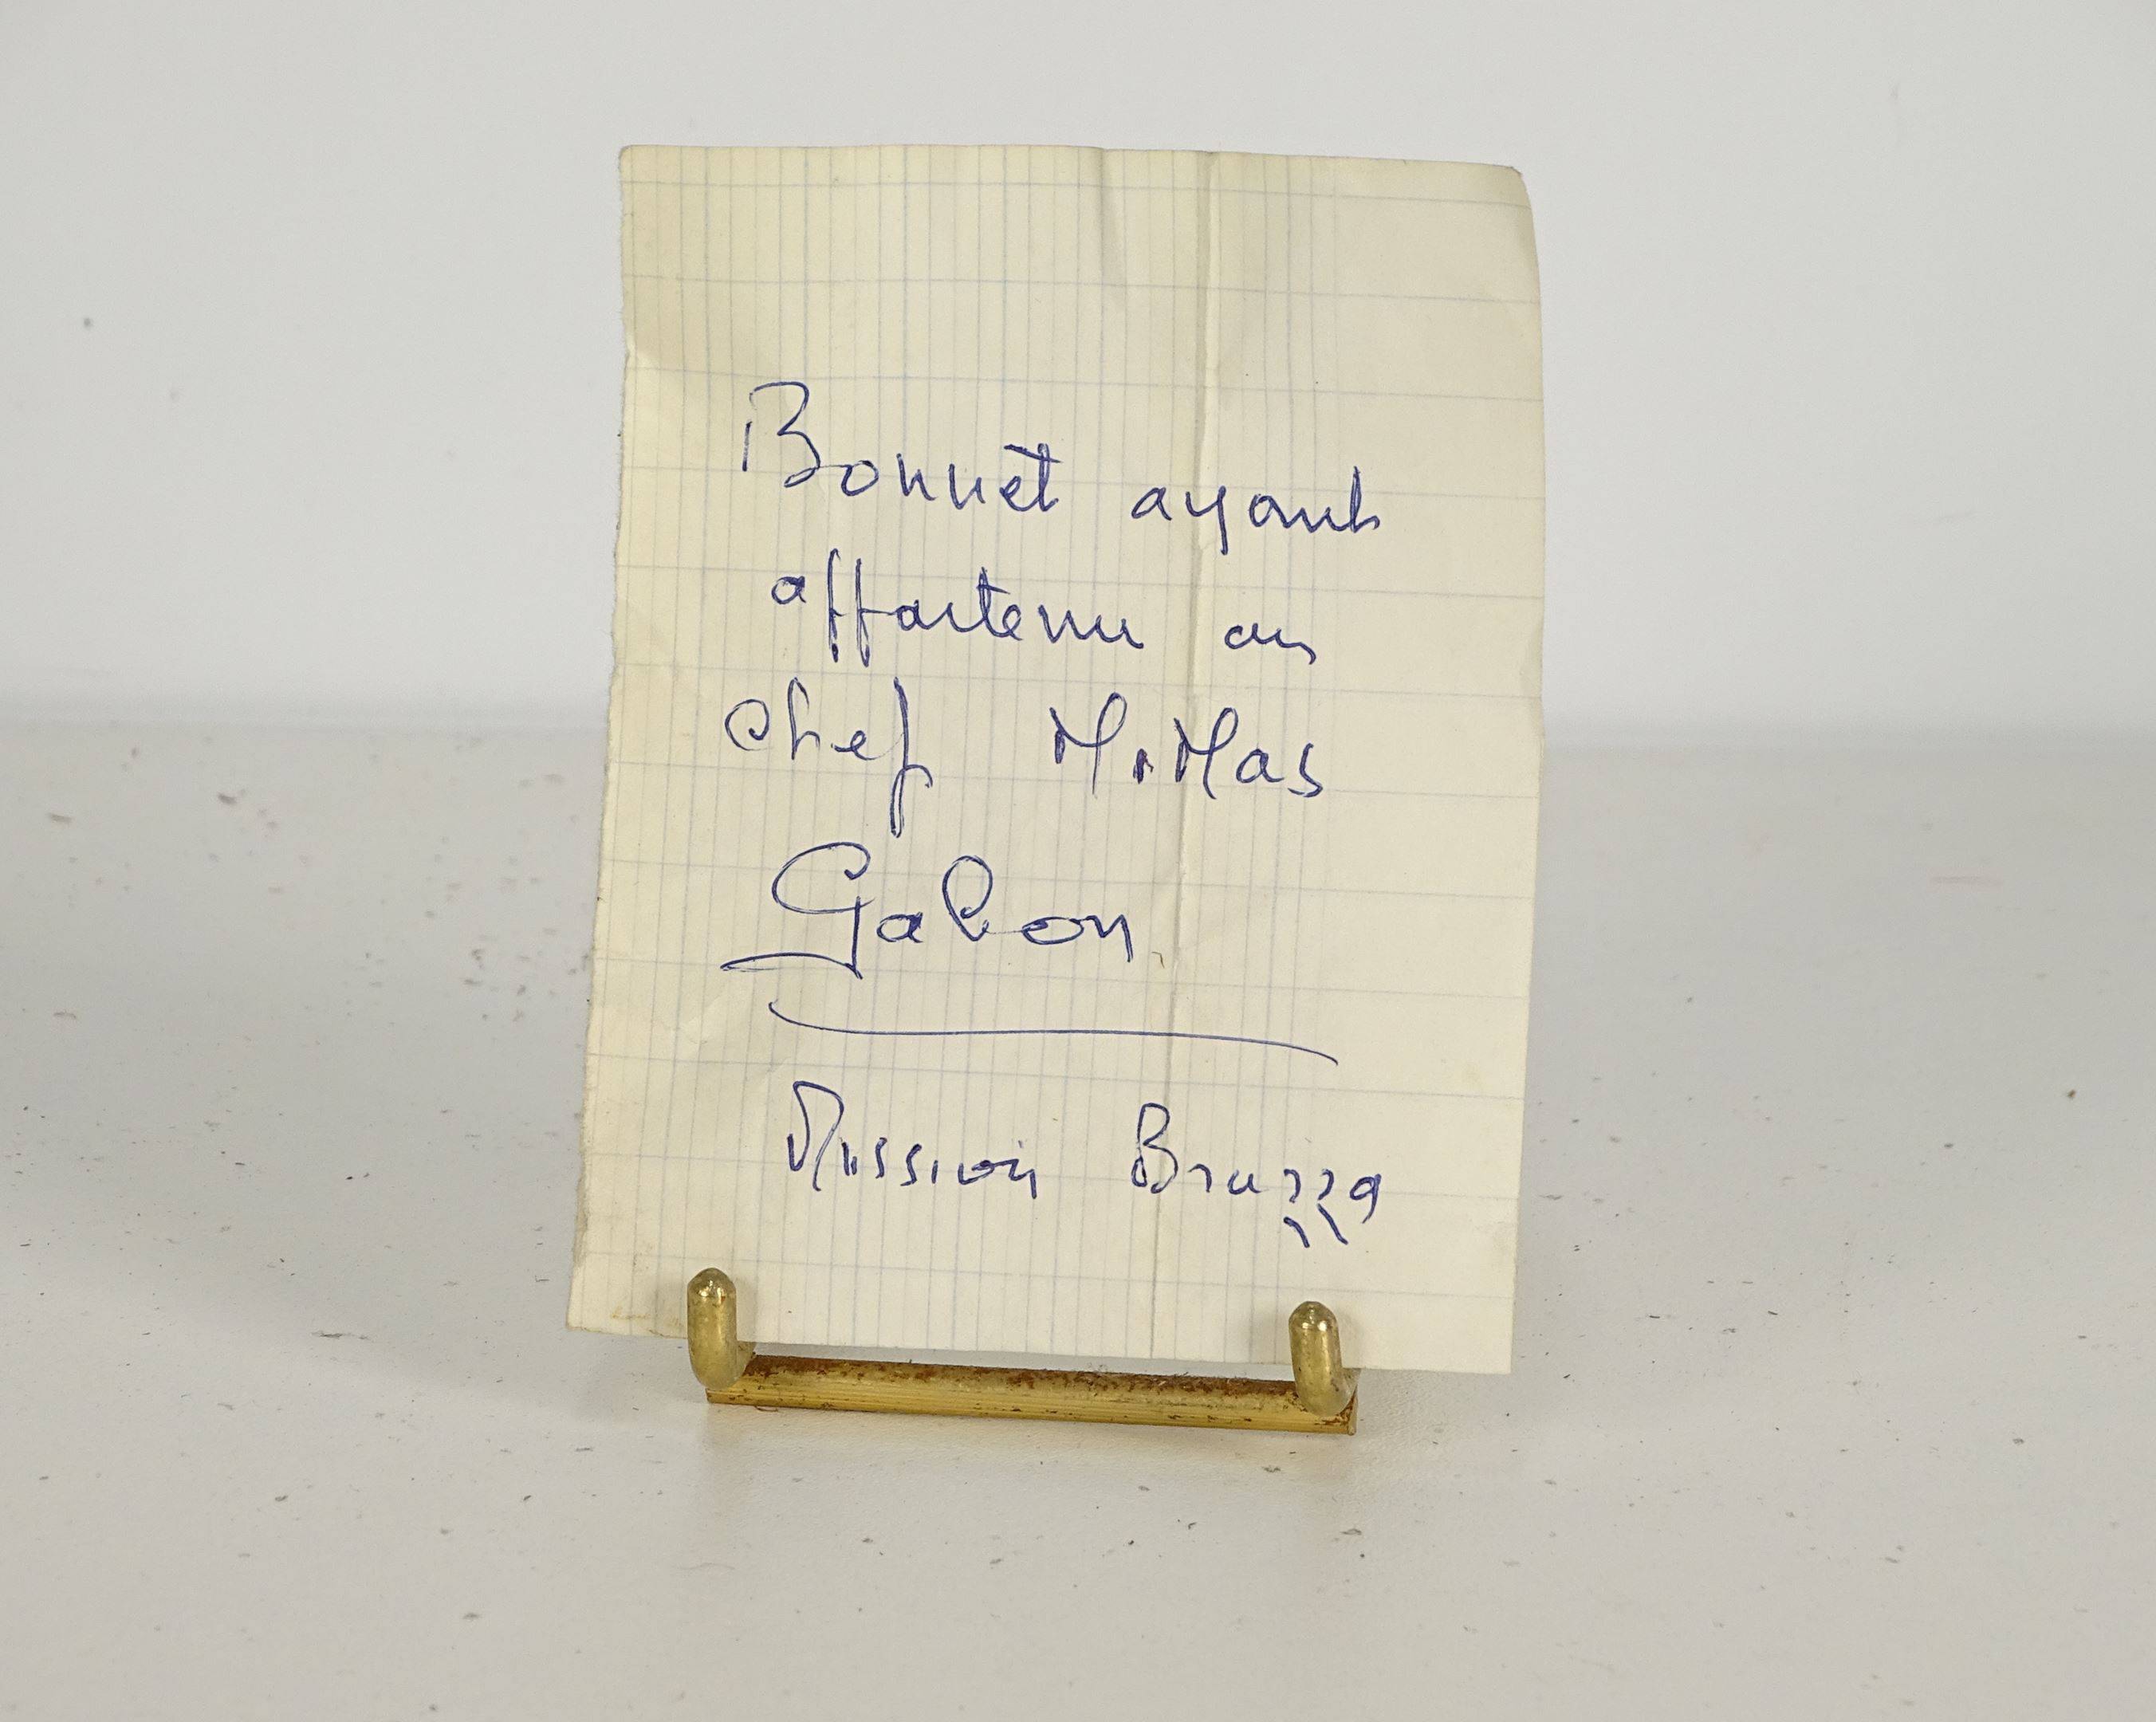 Bonnet ayant
appartenu au
chef MiMas
Gabon
Mission Brazza